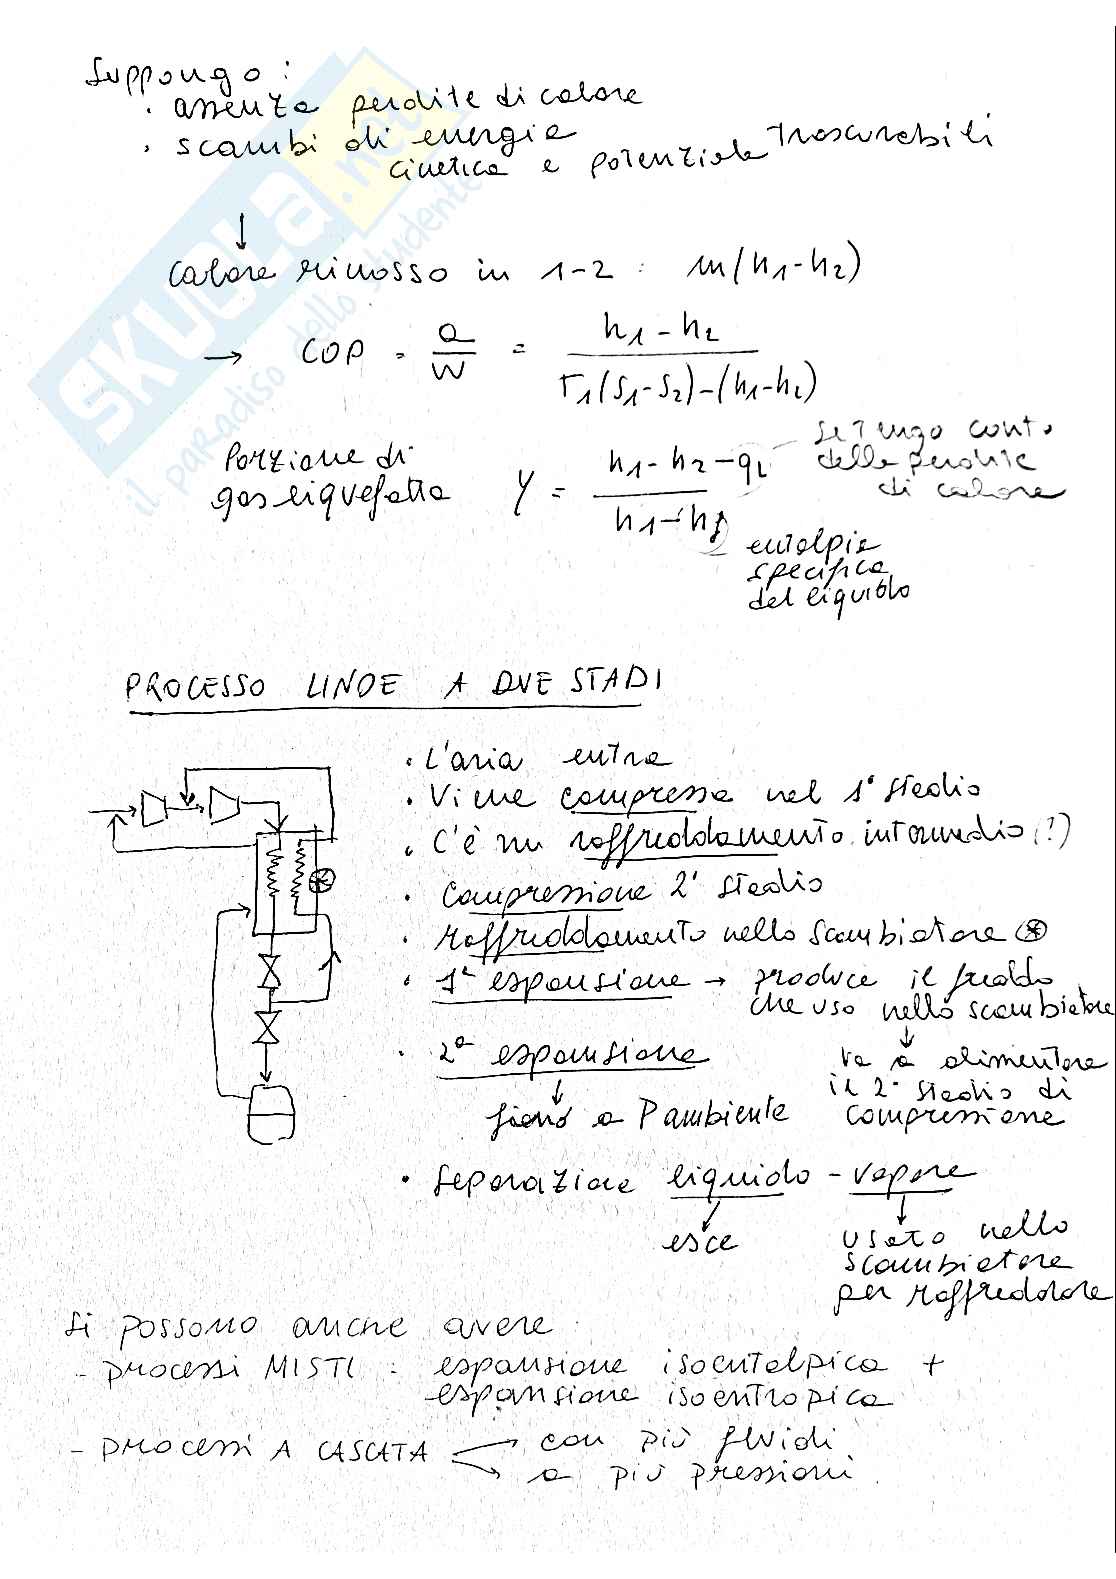 Suppongo :
· assenza perdite di calore
· scambi di energia
cinetica e potenziale trascurabili
↓
Calore rimosso in 1-2 : m(h1-h2)
→ COP = Q/W = (h1-h2)/(T1(S1-S2)-(h1-h2))
Porzione di
gas liquefatta
Y = (h1-h2-qL)/(h1-hf)
se tengo conto
delle perdite
di calore
entalpia
specifica
del liquido
PROCESSO LINDE A DUE STADI
· L'aria entra
· Viene compressa nel 1° stadio
· C'è un raffreddamento intermedio (?)
· Compressione 2° stadio
· Raffreddamento nello scambiatore ⊛
· 1ª espansione → produce il freddo
che uso nello scambiatore
↓
va a alimentare
il 2° stadio di
compressione
· 2ª espansione
↓
fino a P ambiente
· Separazione liquido - vapore
esce
usato nello
scambiatore
per raffreddare
Si possono anche avere :
- processi MISTI : espansione isoentalpica +
espansione isoentropica
- processi A CASCATA → con più fluidi
→ a più pressioni.
SKUOLA.net
il paradiso dello studente